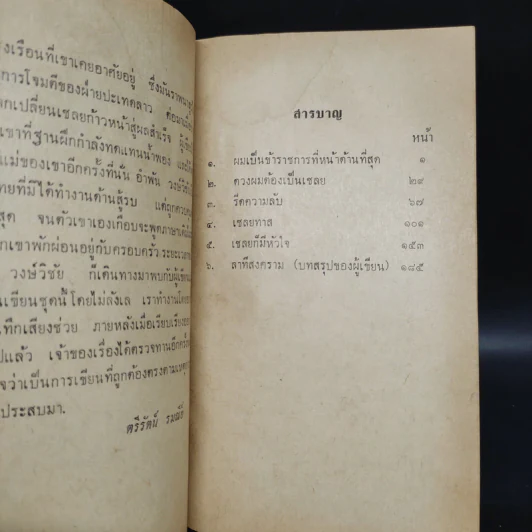 งเรือนที่เขาเคยอาศัยอยู่ ซึ่งมัน
การโจมตีของฝ่ายปะเทดลาว ต่อมา
กเปลี่ยนเชลยก้าวหน้าสู่ผลสำเร็จ
เขาที่ฐานฝึกกำลังทดแทนน้ำพอง
แม่ของเขาอีกครั้งที่นั่น อำพัน วงษ์วิชัย
ทยที่มิได้ทำงานด้านสู้รบ แต่ถูก
สุด จนตัวเขาเองเกือบจะพูดภาษา
กเขาพักผ่อนอยู่กับครอบครัวระยะเวลา
วงษ์วิชัย ก็เดินทางมาพบกับผู้เขียน
เขียนชุดนี้โดยไม่ลังเล เราทำงานโดย
ทึกเสียงช่วย ภายหลังเมื่อเรียบเรียง
ปแล้ว เจ้าของเรื่องได้ตรวจทานอีกครั้ง
จว่าเป็นการเขียนที่ถูกต้องตรงตาม
ประสบมา.
ตรีรัตน์ รมณีย์
สารบาญ
หน้า
๑. ผมเป็นข้าราชการที่หน้าด้านที่สุด ๑
๒. ดวงผมต้องเป็นเชลย ๒๙
๓. รีดความลับ ๖๗
๔. เชลยทาส ๑๐๑
๕. เชลยก็มีหัวใจ ๑๕๓
๖. ลาทีสงคราม (บทสรุปของผู้เขียน) ๑๘๕